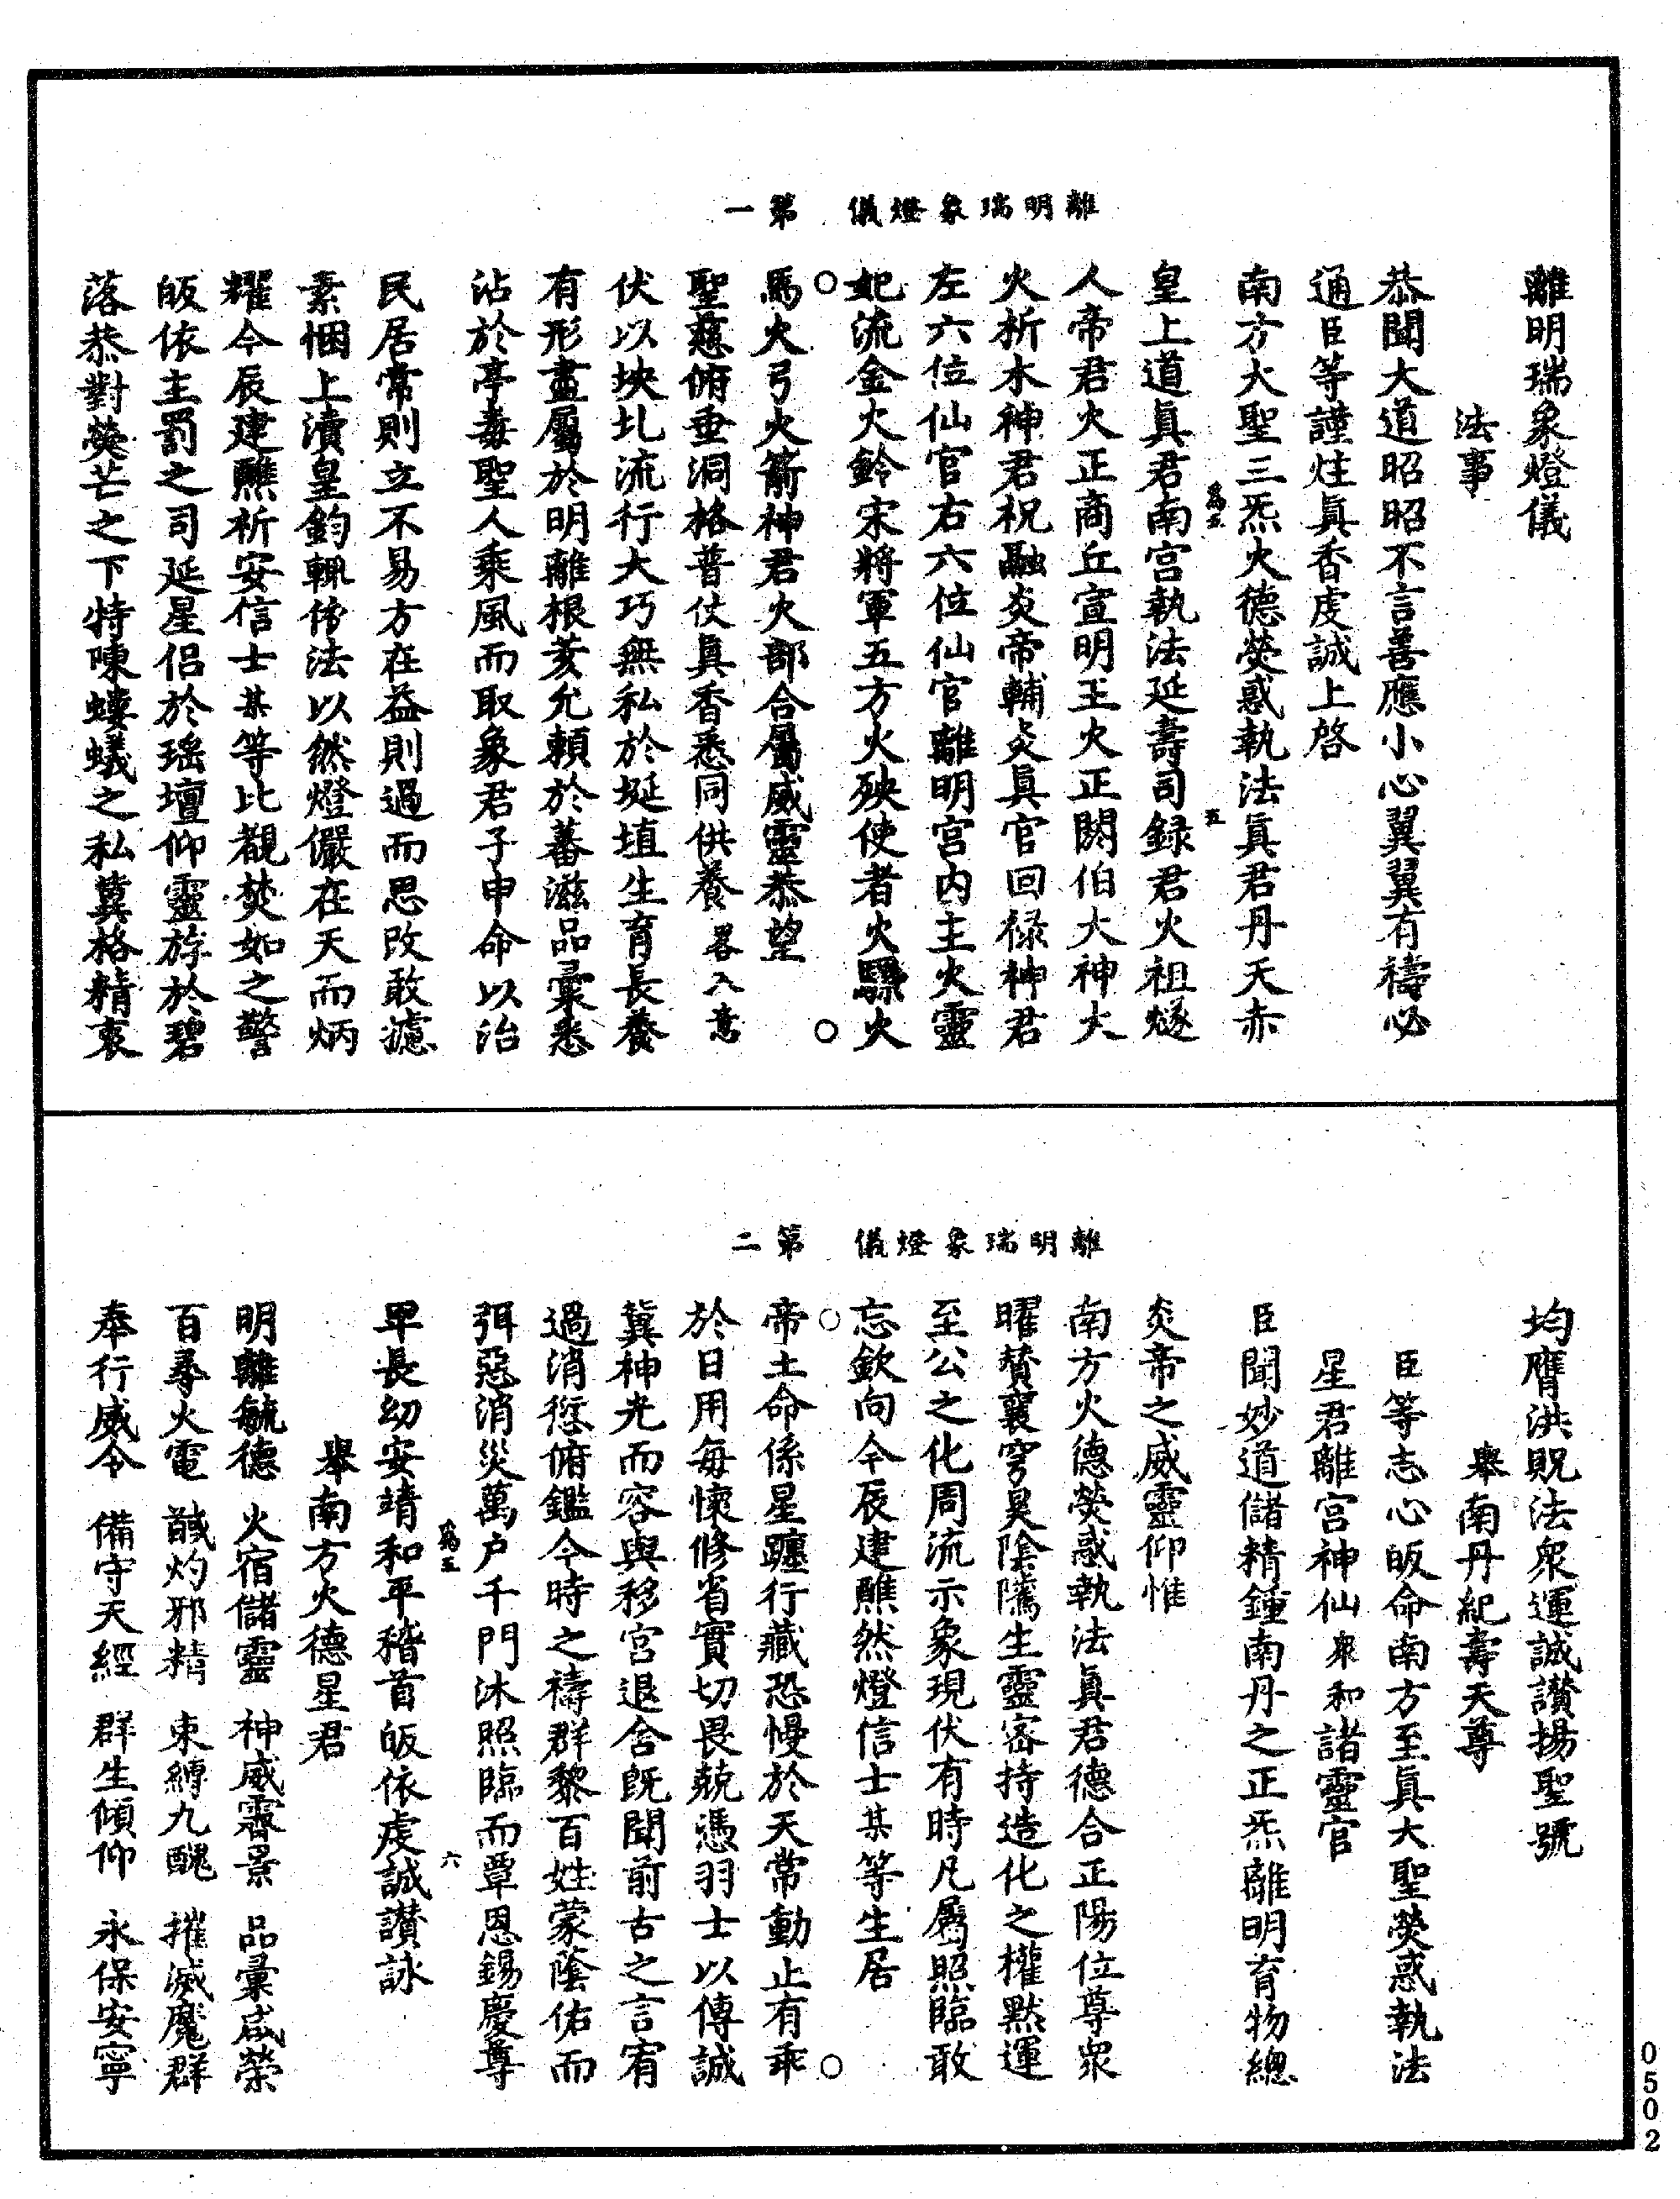 離明瑞象燈儀　第一
離明瑞象燈儀
法事
恭聞大道昭昭不言善應小心翼翼有禱必
通臣等謹炷眞香虔誠上啓
南方大聖三炁火德熒惑執法眞君丹天赤
爲五　五
皇上道眞君南宮執法延壽司録君火祖燧
人帝君火正商丘宣明王火正閼伯大神大
火析木神君祝融炎帝輔炎眞官回禄神君
左六位仙官右六位仙官離明宮内主火靈
妃流金火鈴宋將軍五方火殃使者火騾火
馬火弓火箭神君火部合屬威靈恭望
聖慈俯垂洞格普仗眞香悉同供養畧入意
伏以坱圠流行大巧無私於埏埴生育長養
有形盡屬於明離根荄允頼於蕃滋品彙悉
沾於亭毒聖人乘風而取象君子申命以治
民居常則立不易方在益則過而思改敢攄
素悃上瀆皇鈞輒俻法以然燈儼在天而炳
耀今辰建醮祈安信士某等比覩焚如之警
皈依主罰之司延星侣於瑶壇仰靈斿於碧
落恭對熒芒之下特陳螻蟻之私冀格精衷
離明瑞象燈儀　第二
均膺洪貺法衆運誠讃揚聖號
舉南丹紀壽天尊
臣等志心皈命南方至眞大聖熒惑執法
星君離宮神仙衆和諸靈官
臣聞妙道儲精鍾南丹之正炁離明育物總
炎帝之威靈仰惟
南方火德熒惑執法眞君德合正陽位尊衆
曜賛襄穹昊陰隲生靈密持造化之權黙運
至公之化周流示象現伏有時凡屬照臨敢
忘欽向今辰建醮然燈信士某等生居
帝土命係星躔行藏恐慢於天常動止有乖
於日用每懷修省實切畏兢憑羽士以傳誠
冀神光而容與移宮退舍旣聞前古之言宥
過消愆俯鑑今時之禱群黎百姓蒙蔭佑而
弭惡消災萬户千門沐照臨而覃恩錫慶尊
爲五　六
卑長幼安靖和平稽首皈依虔誠讃詠
舉南方火德星君
明離毓德　火宿儲靈　神威霽景　品彙咸榮
百尋火電　馘灼邪精　束縛九醜　摧滅魔群
奉行威令　備守天經　群生傾仰　永保安寧
0502